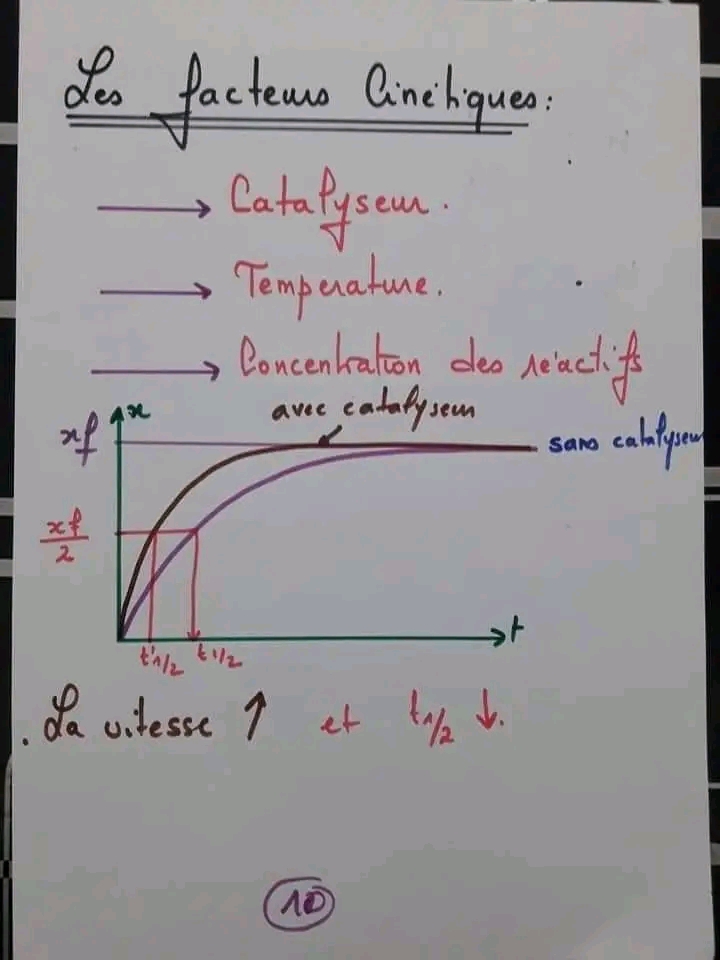 Les facteurs Cinétiques:
→ Catalyseur.
→ Température.
→ Concentration des réactifs
x
avec catalyseur
xf
sans catalyseur
xf/2
t
t'1/2 t1/2
. La vitesse ↑ et t1/2 ↓.
10